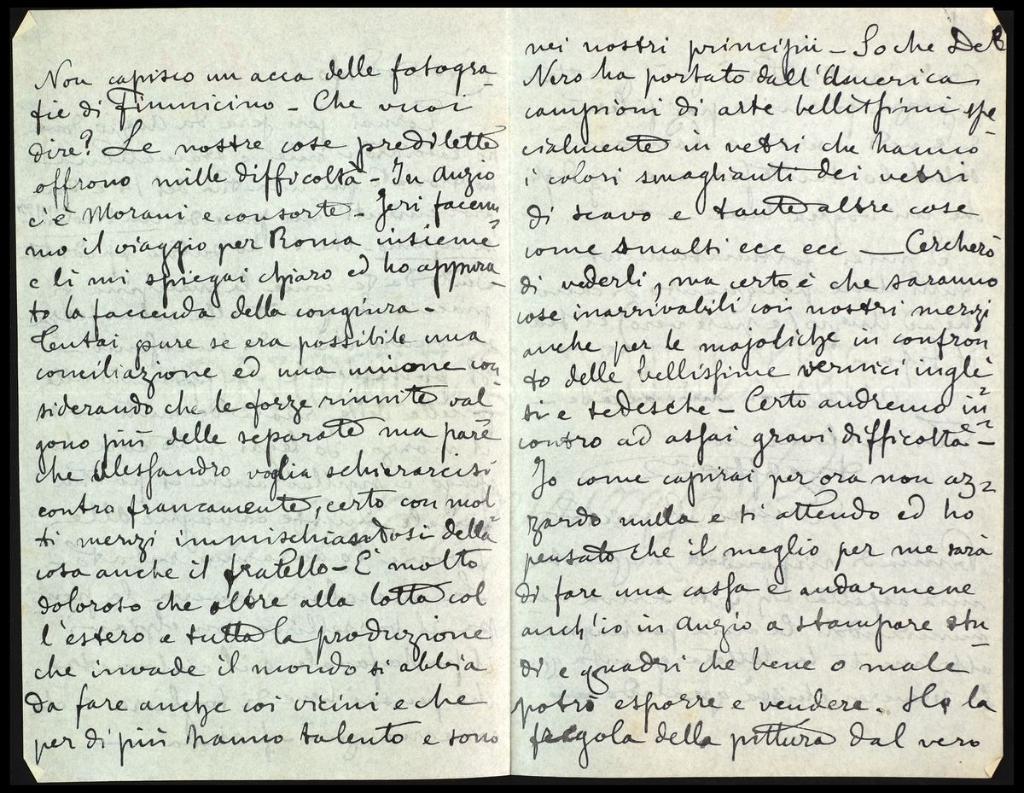 Non capisco un acca delle fotogra-
fie di Fiumicino - Che vuoi
dire? Le nostre cose predilette
offrono mille difficoltà - In Anzio
c'è Morani e consorte - Jeri facem-
mo il viaggio per Roma insieme
e lì mi spiegai chiaro ed ho appura-
to la faccenda della congiura -
Tentai pure se era possibile una
conciliazione ed una unione con
siderando che le forze riunite val
gono più delle separate ma pare
che Alessandro voglia schierarcisi
contro francamente, certo con mol-
ti mezzi immischiandosi della
cosa anche il fratello - È molto
doloroso che oltre alla lotta col
l'estero e tutta la produzione
che invade il mondo si abbia
da fare anche coi vicini e che
per di più hanno talento e sono
nei nostri principii - So che Del
Nero ha portato dall'America
campioni di arte bellissimi spe-
cialmente in vetri che hanno
i colori smaglianti dei vetri
di scavo e tante altre cose
come smalti ecc ecc - Cercherò
di vederli, ma certo è che saranno
cose inarrivabili coi nostri mezzi
anche per le majoliche in confron
to delle bellissime vernici ingle-
si e tedesche - Certo andremo in-
contro ad assai gravi difficoltà -
Jo come capirai per ora non az-
zardo nulla e ti attendo ed ho
pensato che il meglio per me sarà
di fare una cassa e andarmene
anch'io in Anzio a stampare stu-
di e quadri che bene o male
potrò esporre e vendere. Ho la
fregola della pittura dal vero